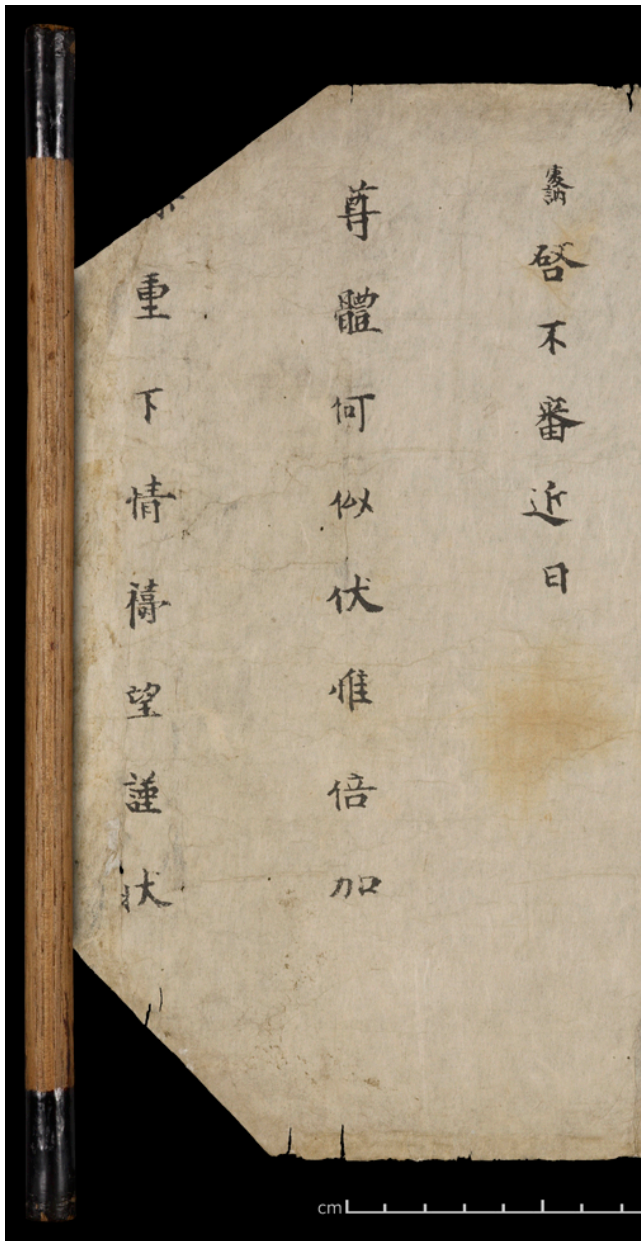 啓不審近日
尊體何似伏惟倍加
重下情禱望謹狀
cm